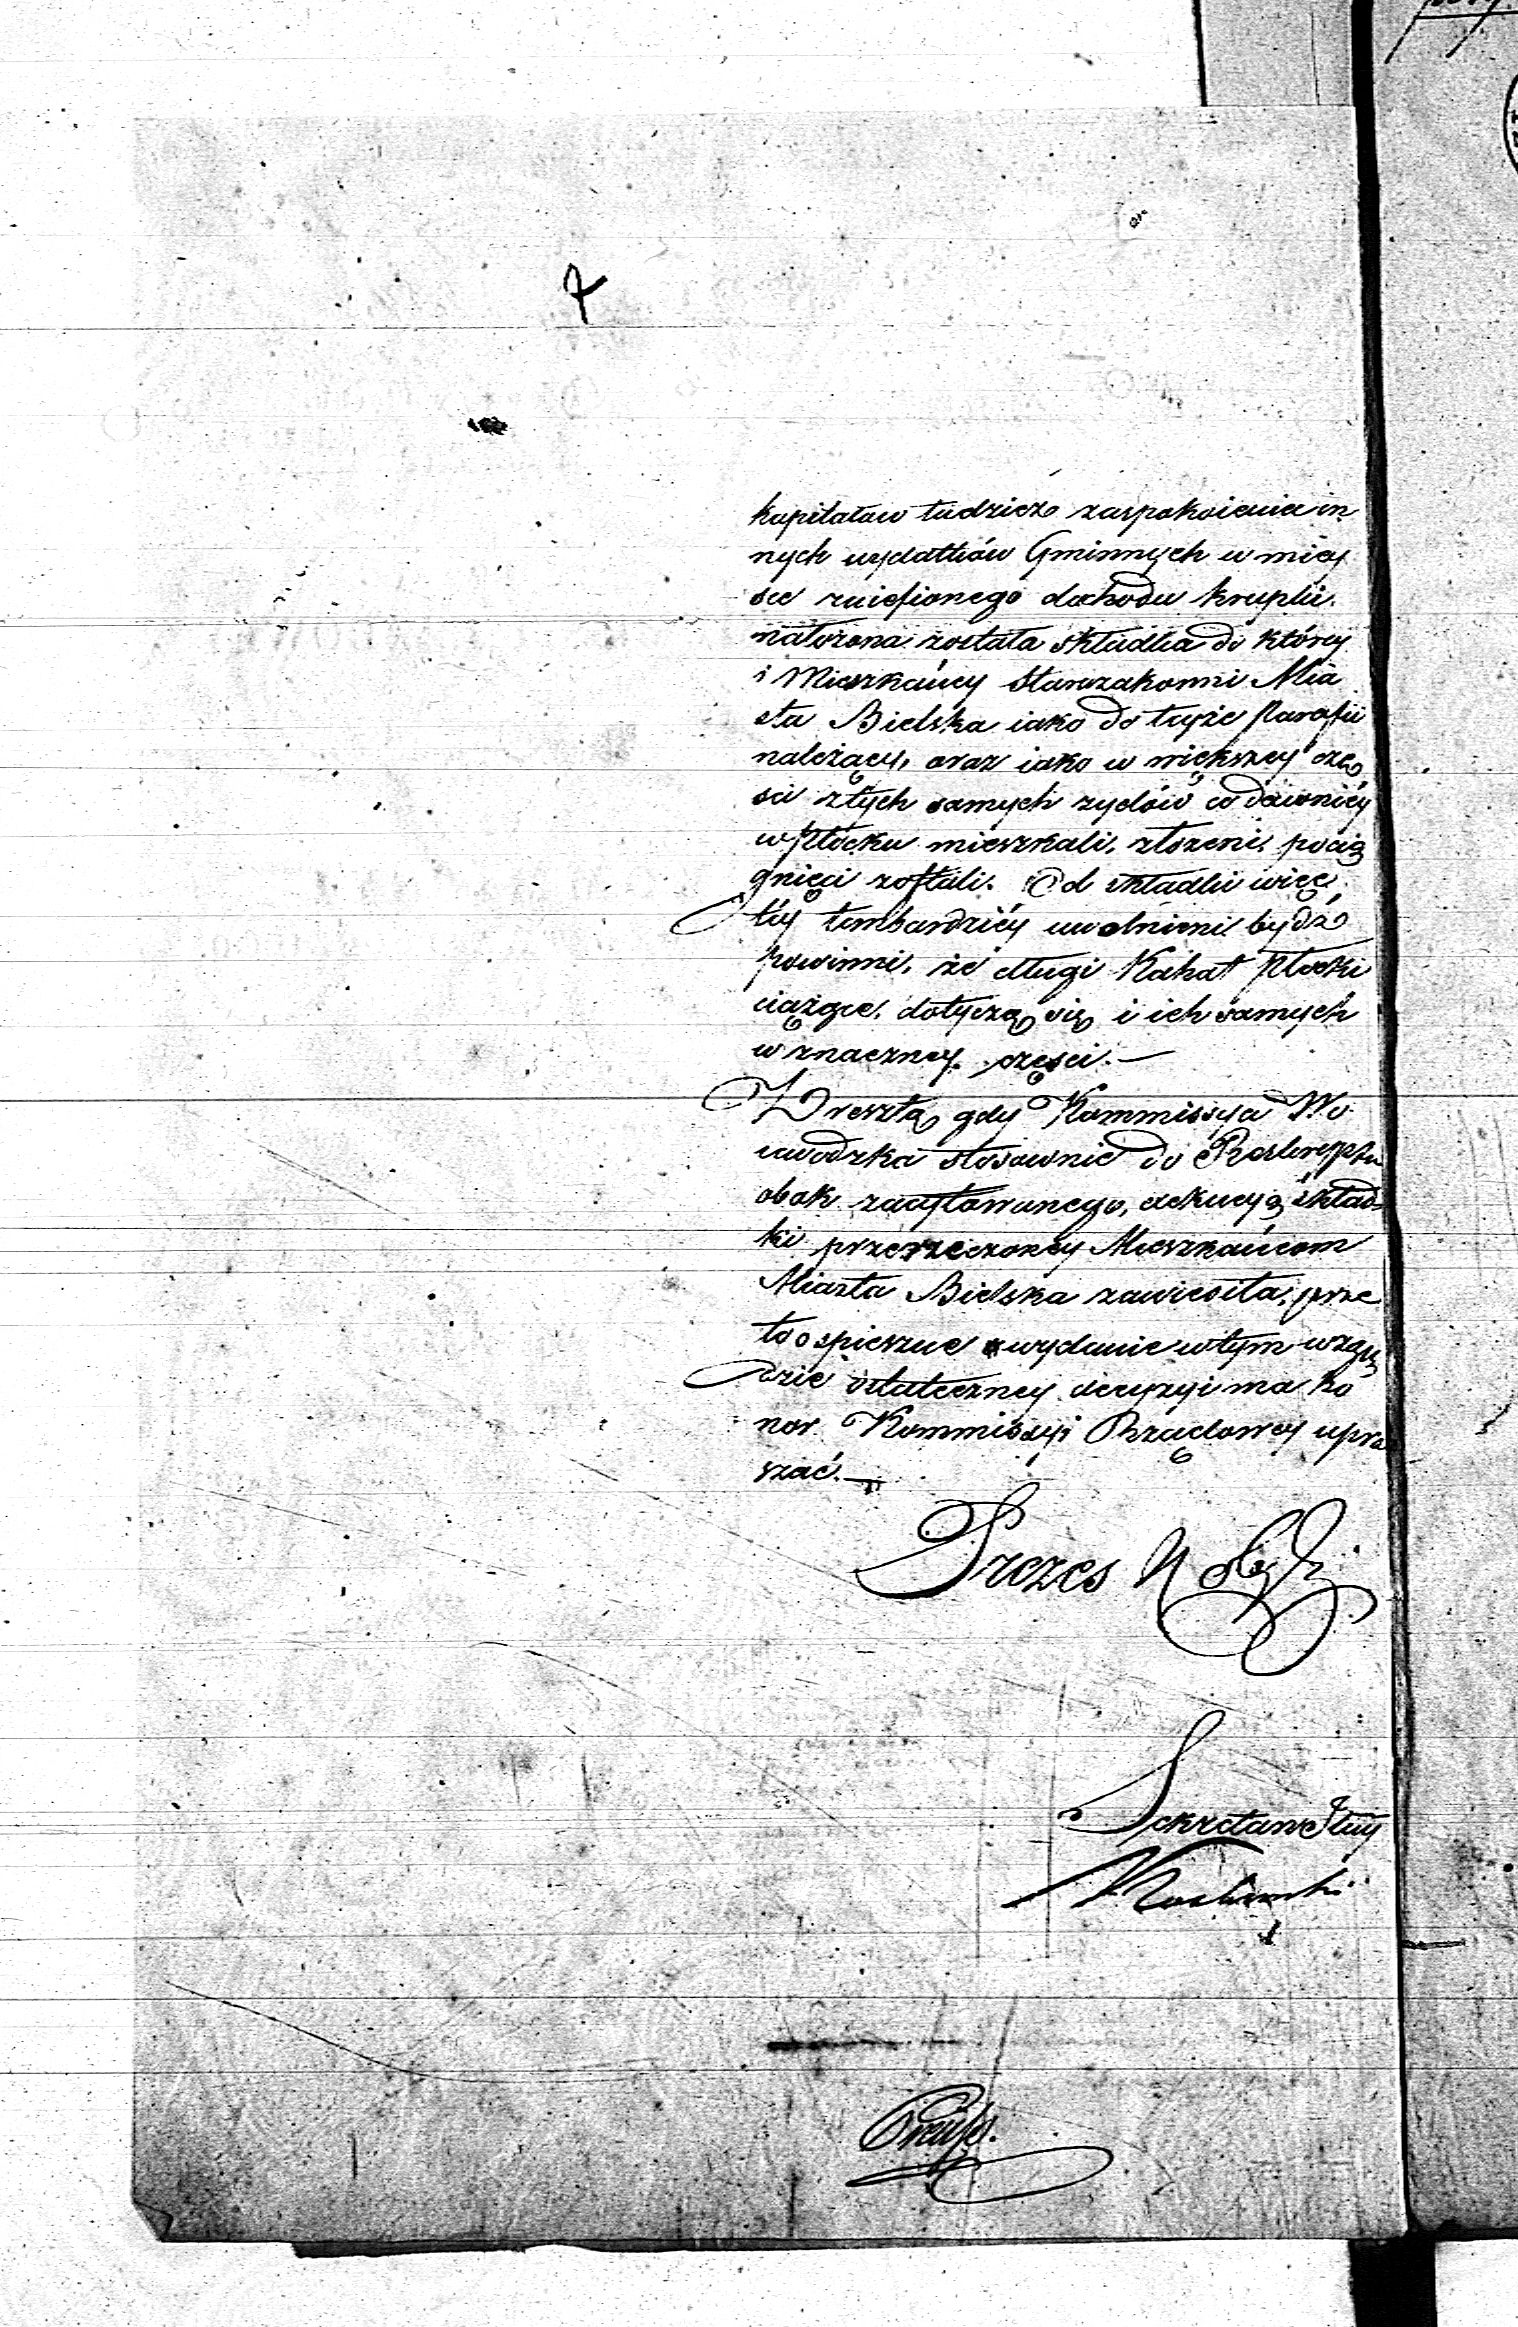 kapitałow tudzież zaspokoienia in
nych wydatków Gminnych w miey
sce zniesionego dochodu krupki.
nałożona została składka do którey
i Mieszkańcy Starozakonni Mia
sta Bielska iako do teyże Parafii
należący, oraz iako w większey czę
sci z tych samych zydów co dawniéy
w Płocku mieszkali, złożeni, pocią
gnięci zostali. Od składki więc
téy tembardziéy uwolnieni bydź
powinni, że długi Kahał Płocki
ciążące, dotyczą się i ich samych
w znaczney części. —
Wreszta gdy Kommissya Wo
iewodzka stosownie do Reskryptu
obok zacytowanego, exekucyą skład-
ki przerzeczoney Mieszkańcom
Miasta Bielska zawiesiła, prze
to o spieszne wydanie w tym wzglę
dzie ostateczney decyzyi ma ho
nor Kommissyi Rządowey upra
szać. —
Prezes
Sekretarz Jlny